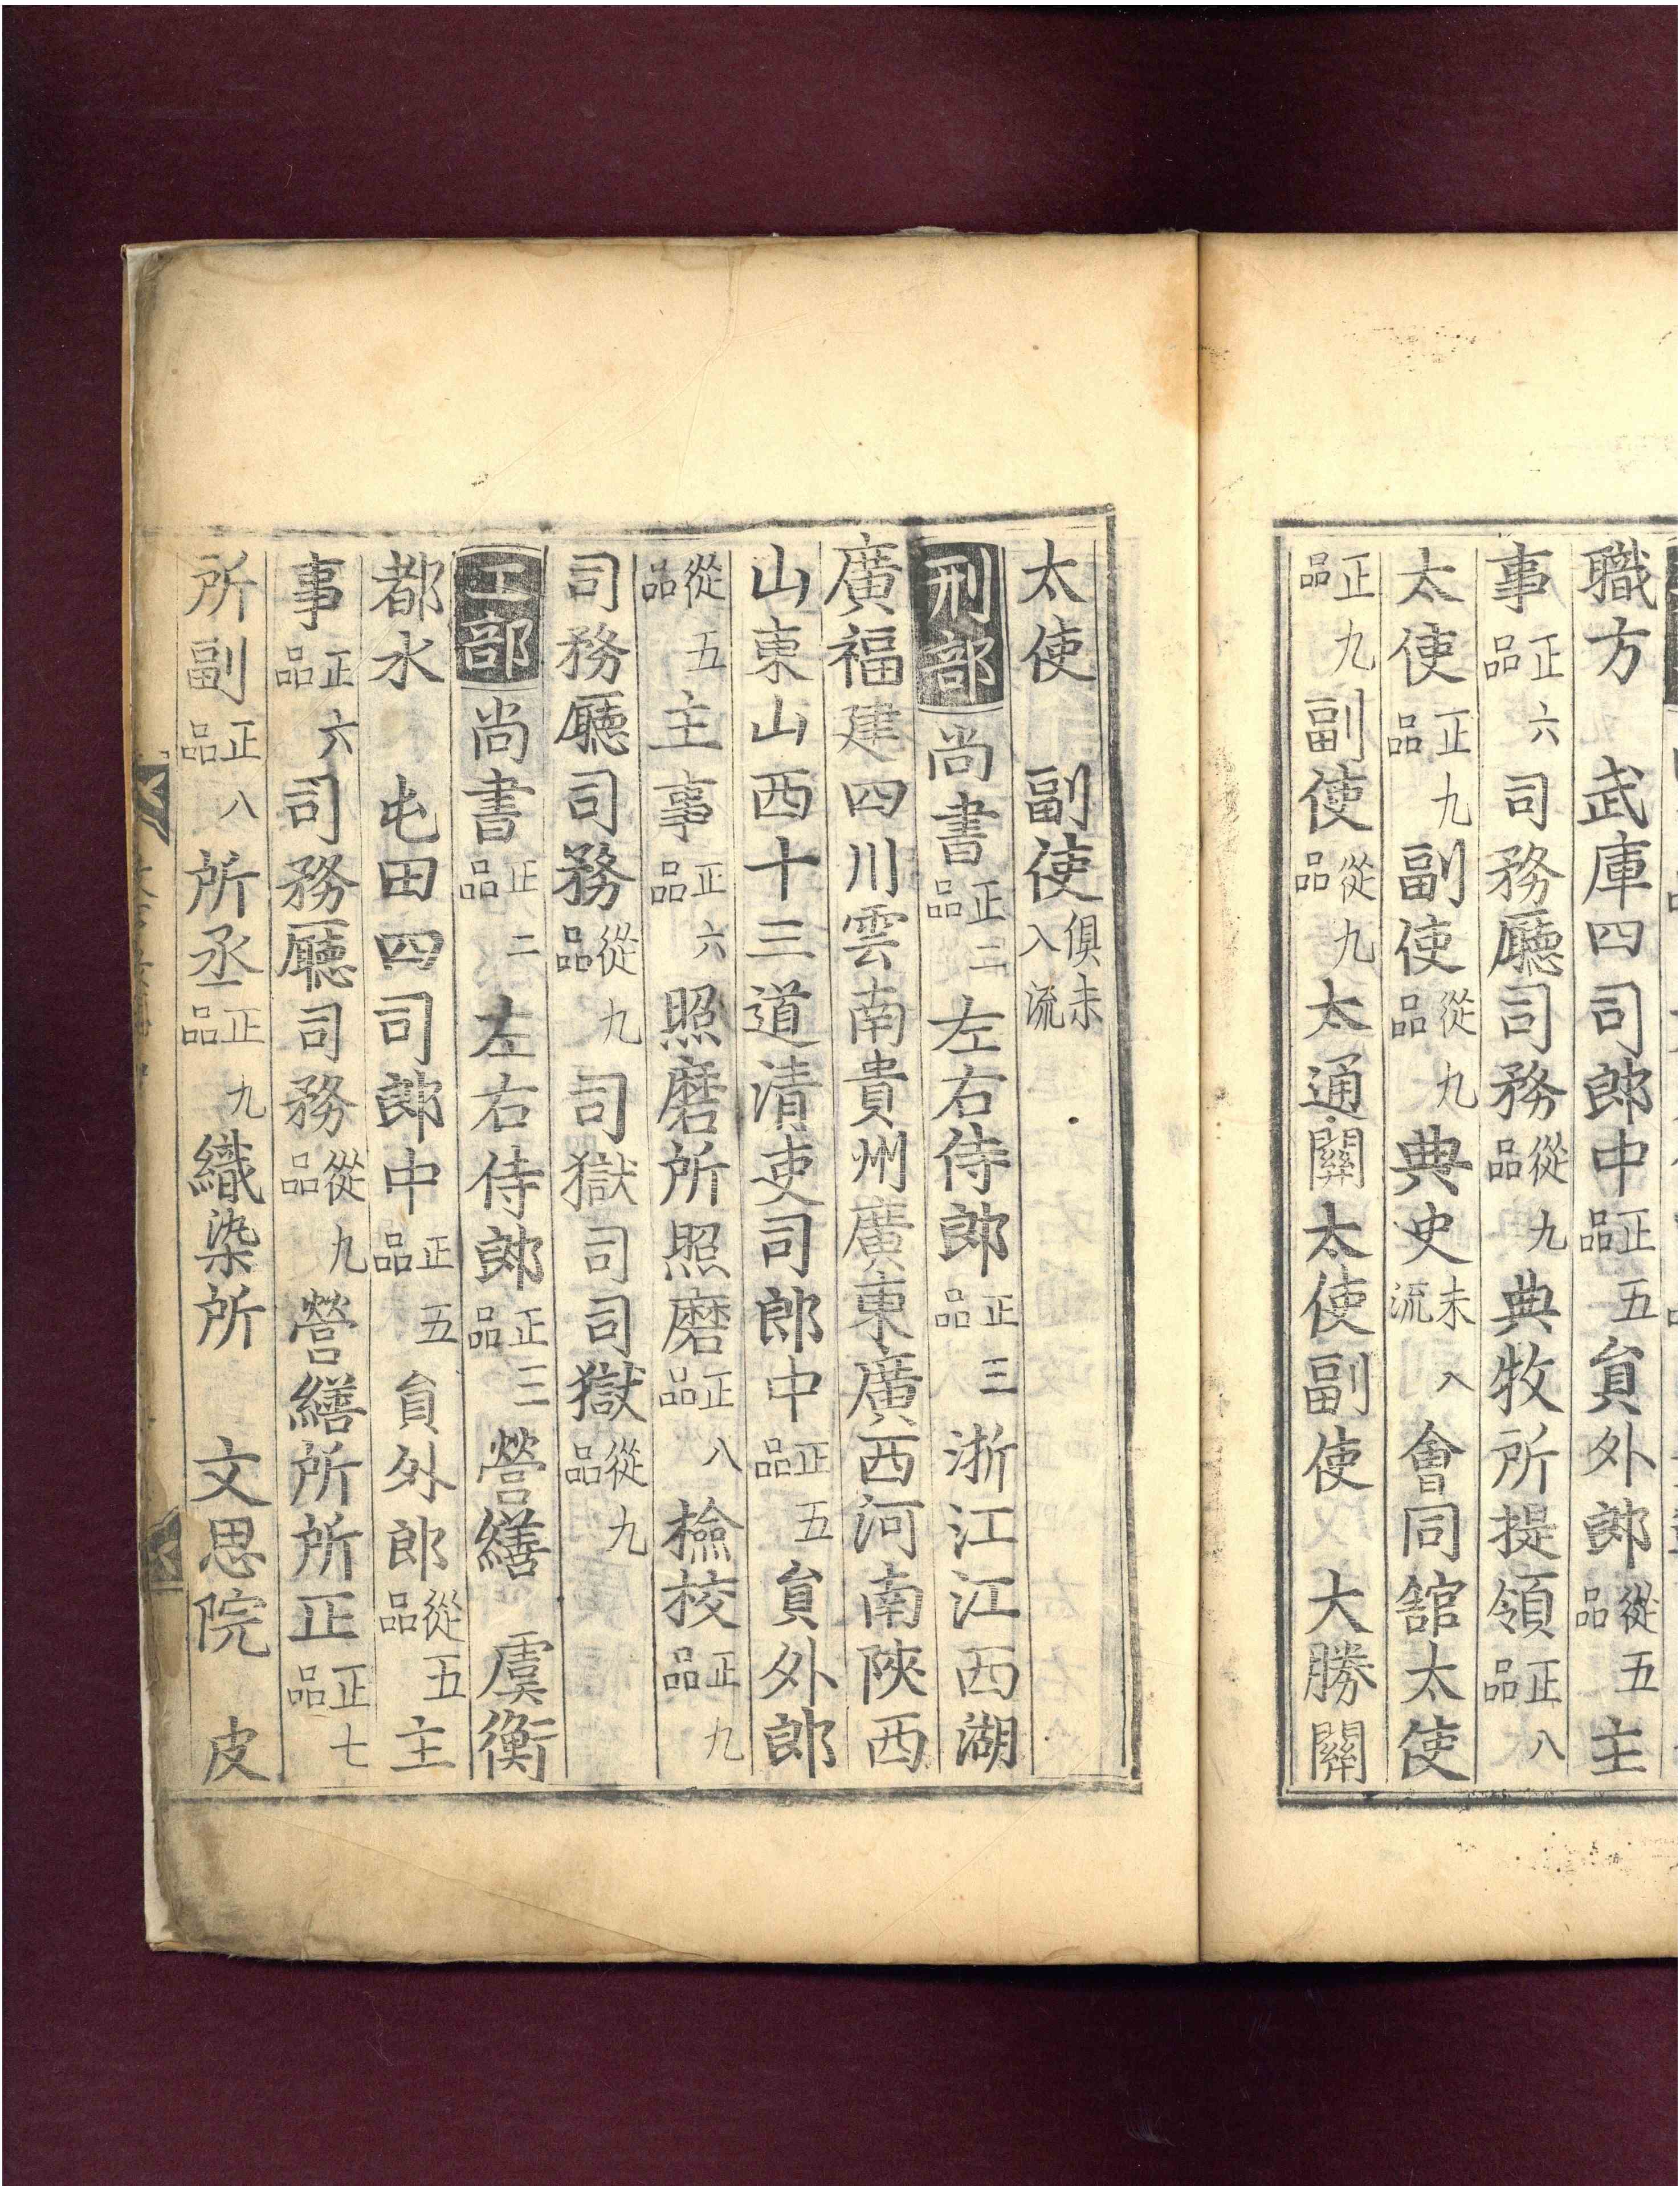 職方 武庫四司郎中正五品員外郎從五品主
事正六品司務廳司務從九品典牧所提領正八品
太使正九品副使從九品典史未入流會同舘太使
正九品副使從九品太通關太使副使 大勝關
太使 副使俱未入流
刑部尚書正二品左右侍郎正三品浙江江西湖
廣福建四川雲南貴州廣東廣西河南陜西
山東山西十三道清吏司郎中正五品員外郎
從五品主事正六品照磨所照磨正八品檢校正九品
司務廳司務從九品司獄司司獄從九品
工部尚書正二品左右侍郎正三品營繕 虞衡
都水 屯田四司郎中正五品員外郎從五品主
事正六品司務廳司務從九品營繕所所正正七品
所副正八品所丞正九品織染所 文思院 皮